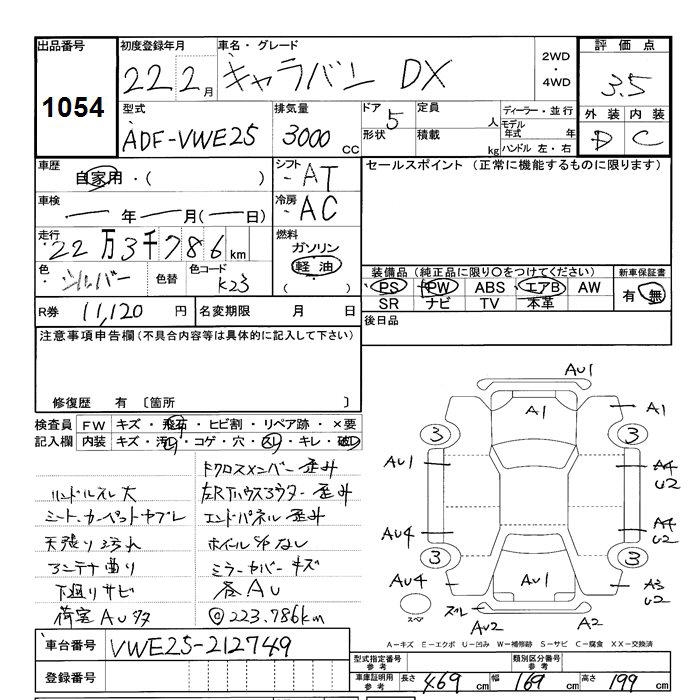 出品番号 初度登録年月 車名・グレード 2WD・4WD 評価点
1054 22年 2月 キャラバン DX 3.5
型式 排気量 ドア 5 定員 人 ディーラー・並行 外装 内装
ADF-VWE25 3000cc 形状 積載 kg モデル年式 年 ハンドル 左・右 D C
車歴 自家用・( ) シフト AT セールスポイント (正常に機能するものに限ります)
車検 ― 年 ― 月(― 日) 冷房 AC
走行 22万3千786km 燃料 ガソリン
軽油
( )
色 シルバー 色替 色コード K23
装備品 (純正品に限り○をつけてください) 新車保証書
PS PW ABS エアB AW 有・無
SR ナビ TV 本革
R券 11,120円 名変期限 月 日 後日品
注意事項申告欄(不具合内容等は具体的に記入して下さい)
修復歴 有 〔箇所 〕
検査員記入欄 FW キズ・飛石・ヒビ割・リペア跡・×要
内装 キズ・汚レ・コゲ・穴・スレ・キレ・破レ
ドクロスメンバー歪み
ハンドルスレ大
左RTハウスアウター歪み
シート、カーペットヤブレ
エンドパネル歪み
天張り汚れ
ホイールC/Pなし
アンテナ曲り
ミラーカバーキズ
下廻りサビ
各AU
荷室AU多
◎223.786km
AU1
A1 A1
3 3
AU1 A4
U2
AU4 A4
U2
3 3
AU4 AU1 A3
U2
スペア ズレ AU2 A2
A-キズ E-エクボ U-凹み W-補修跡 S-サビ C-腐食 XX-交換済
車台番号 VWE25-212749
登録番号
型式指定番号 参考 類別区分番号 参考
車庫証明用 参考 長さ 469cm 幅 169cm 高さ 199cm